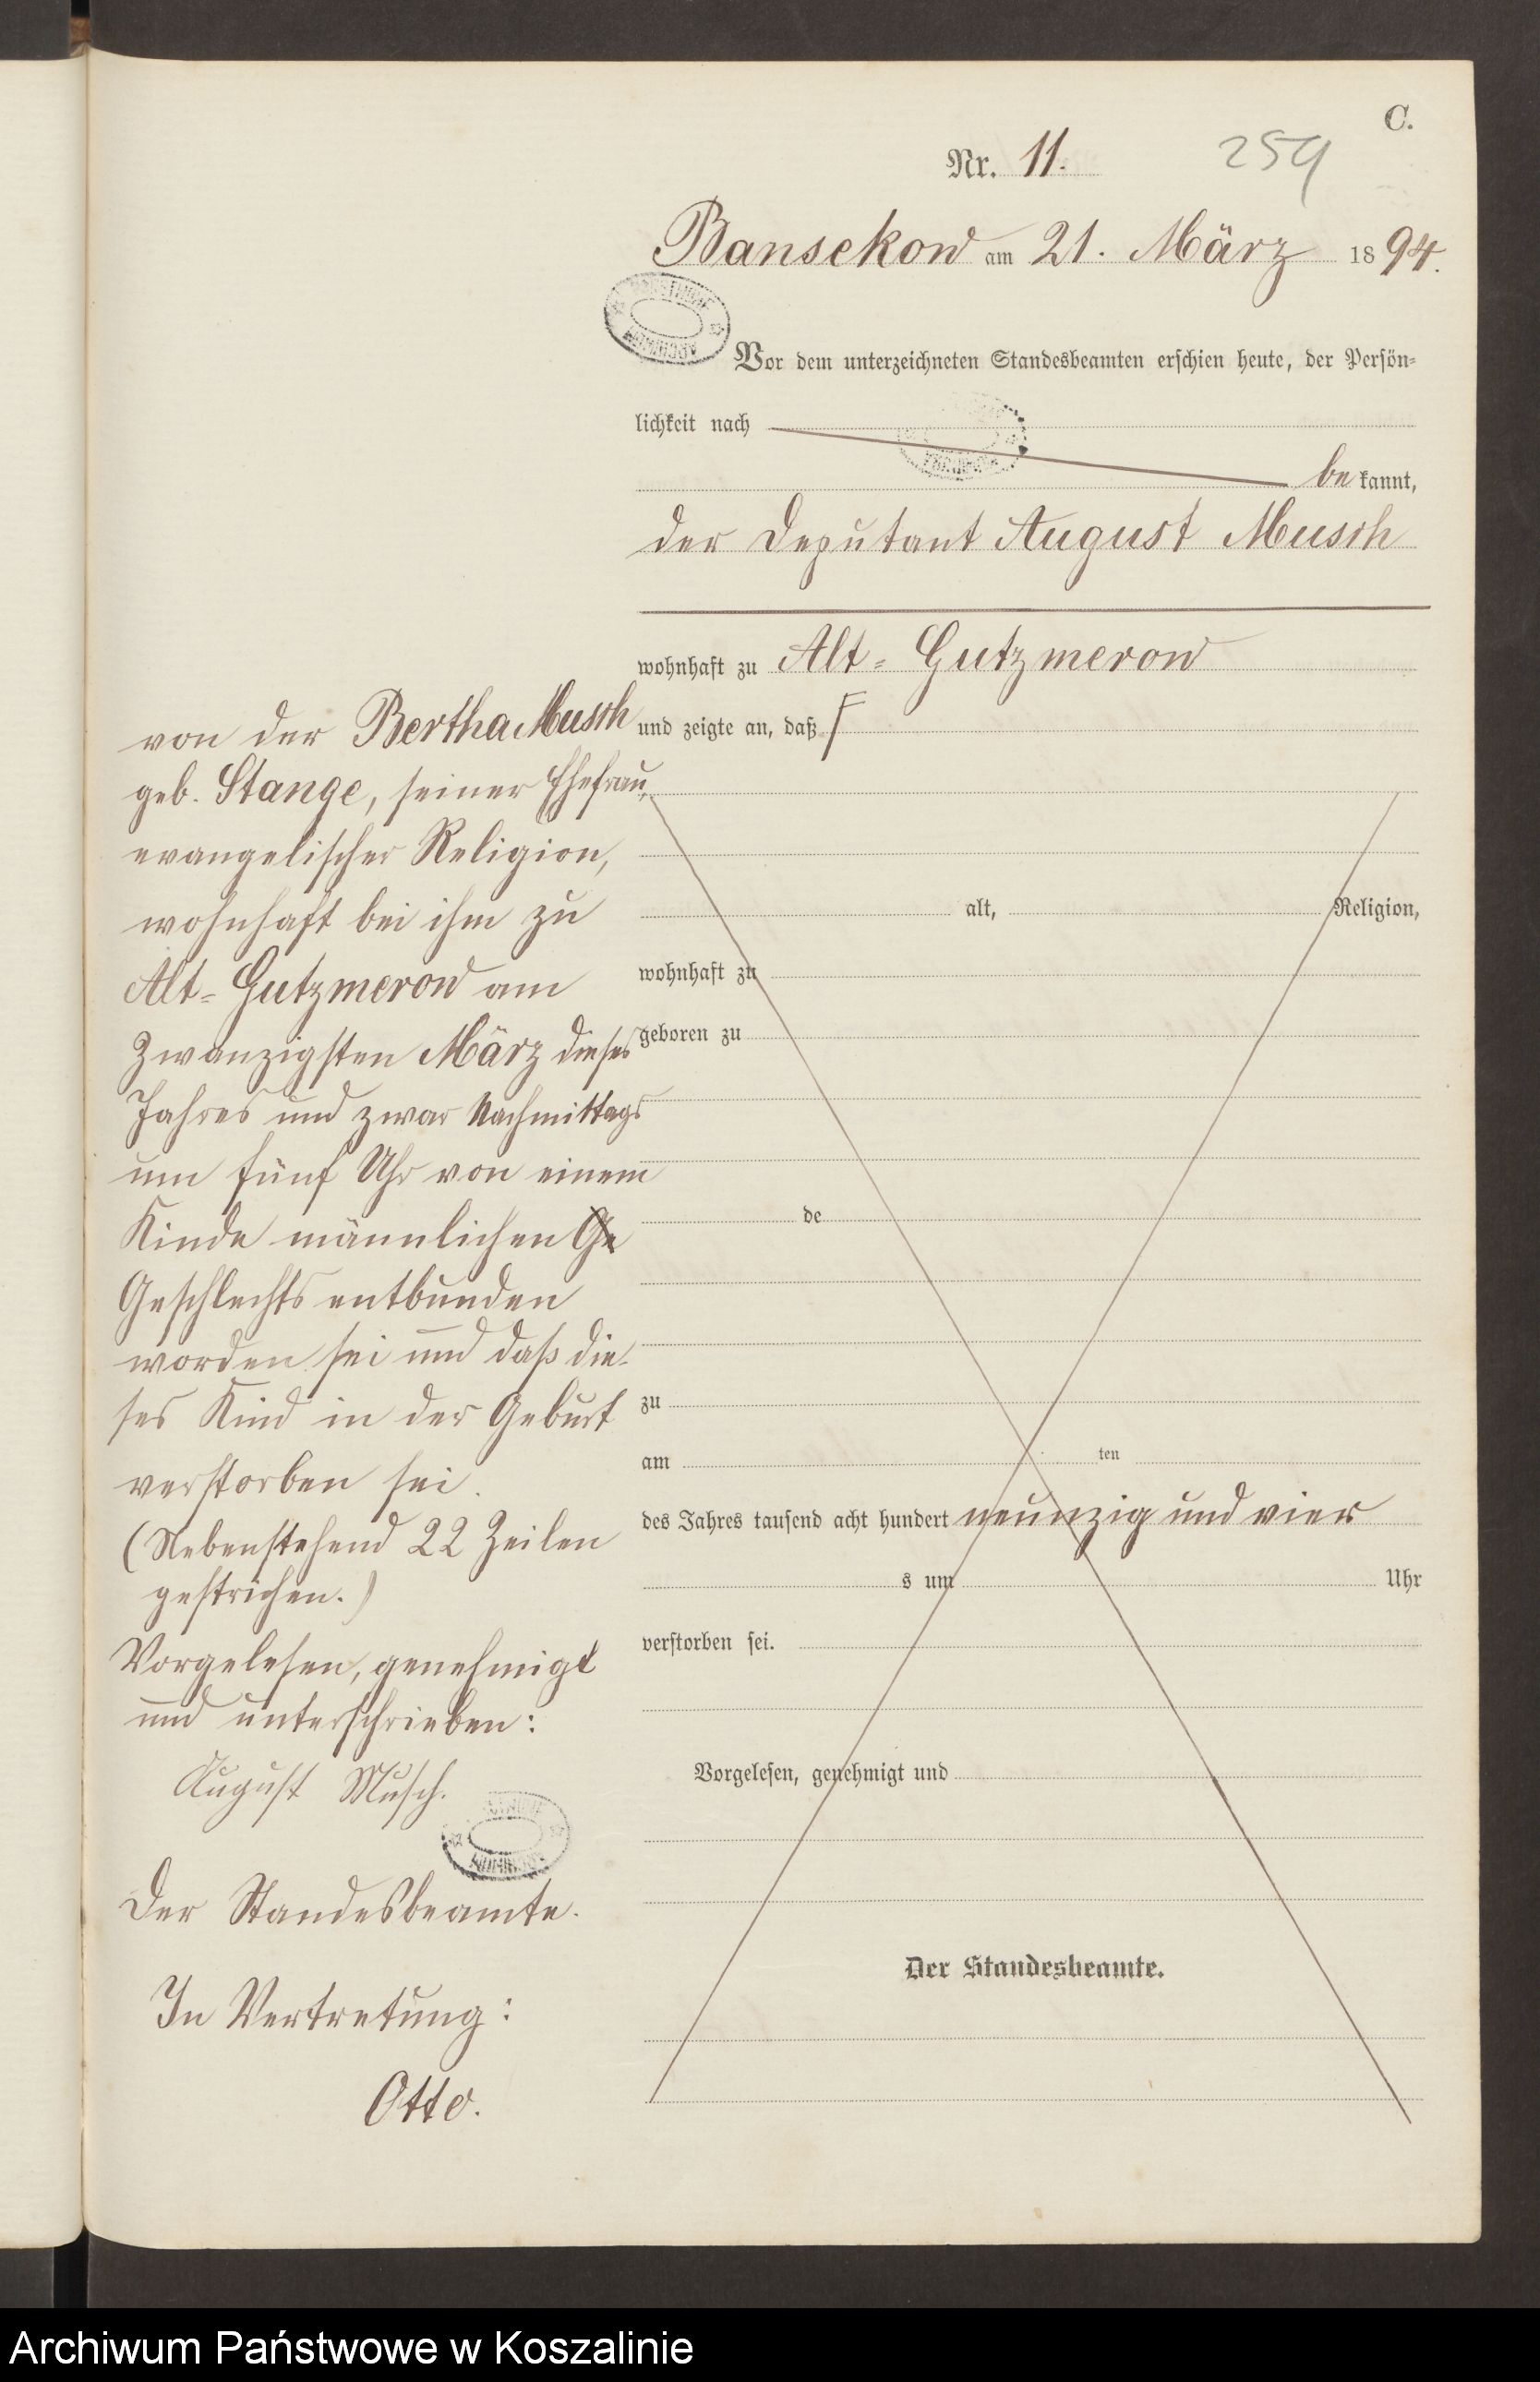 C.
Nr. 11.
259
Bansekow am 21. März 1894.
Vor dem unterzeichneten Standesbeamten erschien heute, der Persön-
lichkeit nach
bekannt,
der Deputant August Musch
wohnhaft zu Alt-Gutzmerow
und zeigte an, daß
von der Bertha Musch
geb. Stange, seiner Ehefrau,
evangelischer Religion,
wohnhaft bei ihm zu
Alt-Gutzmerow am
zwanzigsten März dieses
Jahres und zwar Nachmittags
um fünf Uhr von einem
Kinde männlichen Ge
Geschlechts entbunden
worden sei und daß die-
ses Kind in der Geburt
verstorben sei.
(Nebenstehend 22 Zeilen
gestrichen.)
Vorgelesen, genehmigt
und unterschrieben:
August Musch.
Der Standesbeamte.
In Vertretung:
Otto.
alt, Religion,
wohnhaft zu
geboren zu
de
zu
am ten
des Jahres tausend acht hundert neunzig und vier
s um Uhr
verstorben sei.
Vorgelesen, genehmigt und
Der Standesbeamte.
Archiwum Państwowe w Koszalinie